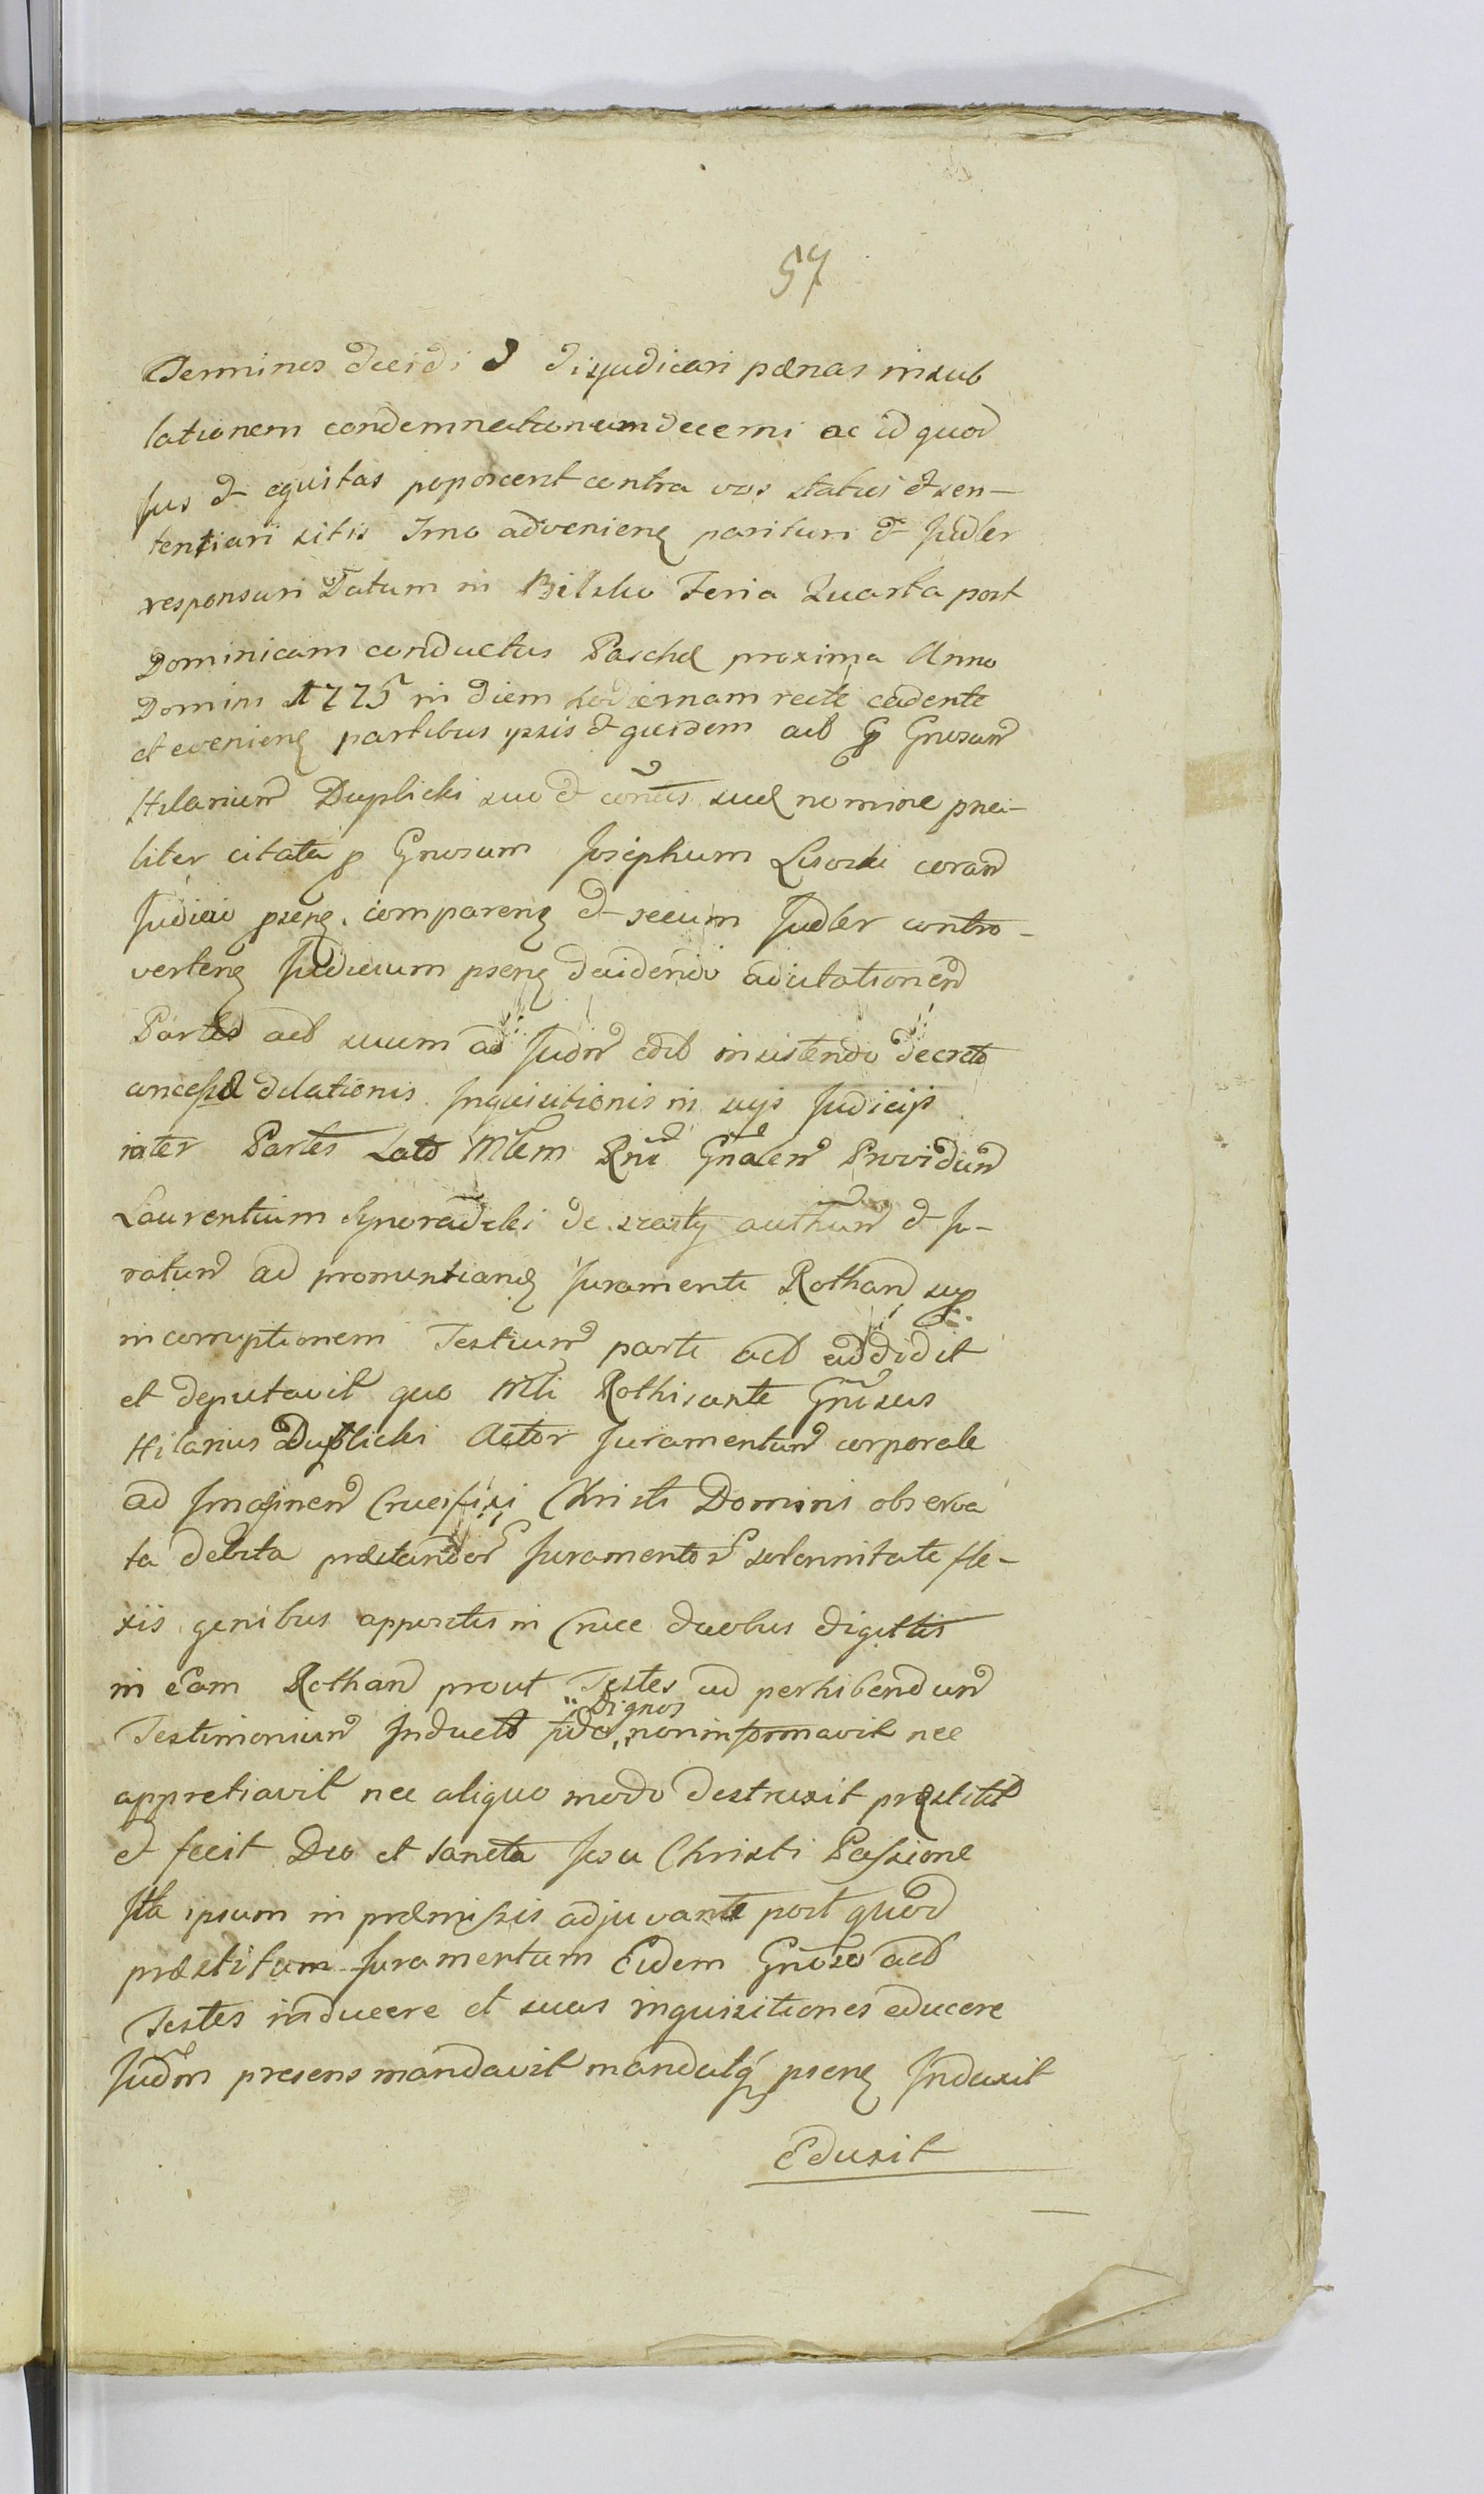 57
Terminos decidi & disjudicari pænas insub
lationem condemnationum decerni ac id quod
Jus & equitas poposcerit contra vos statui & sen-
tentiari sitis Imo advenienę parituri & Judlr
responsuri Datum in Bilsko Feria Quarta post
Dominicam conductus Paschæ proxima Anno
Domini 1775 in diem hodiernam recte cadente
et evenienę partibus ipsis & quidem acb p Gnosum
Hilarium Duplicki suo & contis suæ nomine pnci-
liter citata p Gnosum Josephum Lisoski coram
Judicio psenę comparenę & secum Judlr contro-
vertenę Judicium psenę decidendo ad citationem
Partis acb suum ad Judm edib insistendo decreto
concessæ dilationis Inquisitionis in suis Judiciis
inter Partes Lato Mtem Rni Gnalem Providum
Laurentium Synoradzki de scarty authum & Ju-
ratum ad pronuntianę Juramenti Rotham sup
incorruptionem Testium parti acb addidit
et deputavit quo Mtli Rothisante Gnosus
Hilarius Duplicki Actor Juramentum corporale
ad Imaginem Crucifixi Christi Domini observa
ta debita præstandor Juramentor solennitate fle-
xis genibus appositis in Cruce duobus digittis
in Eam Rotham prout Testes ad perhibendum
Dignos
Testimonium Inducto fide non informavit nec
appretiavit nec aliquo modo destruxit præstitit
& fecit Deo et Sancta Jesu Christi Passione
Ita ipsum in præmissis adjuvante post quod
præstitum Juramentum Eidem Gnoso acb
Testes inducere et suas inquisitiones educere
Judm presens mandavit mandatq psenę Induxit
Eduxit